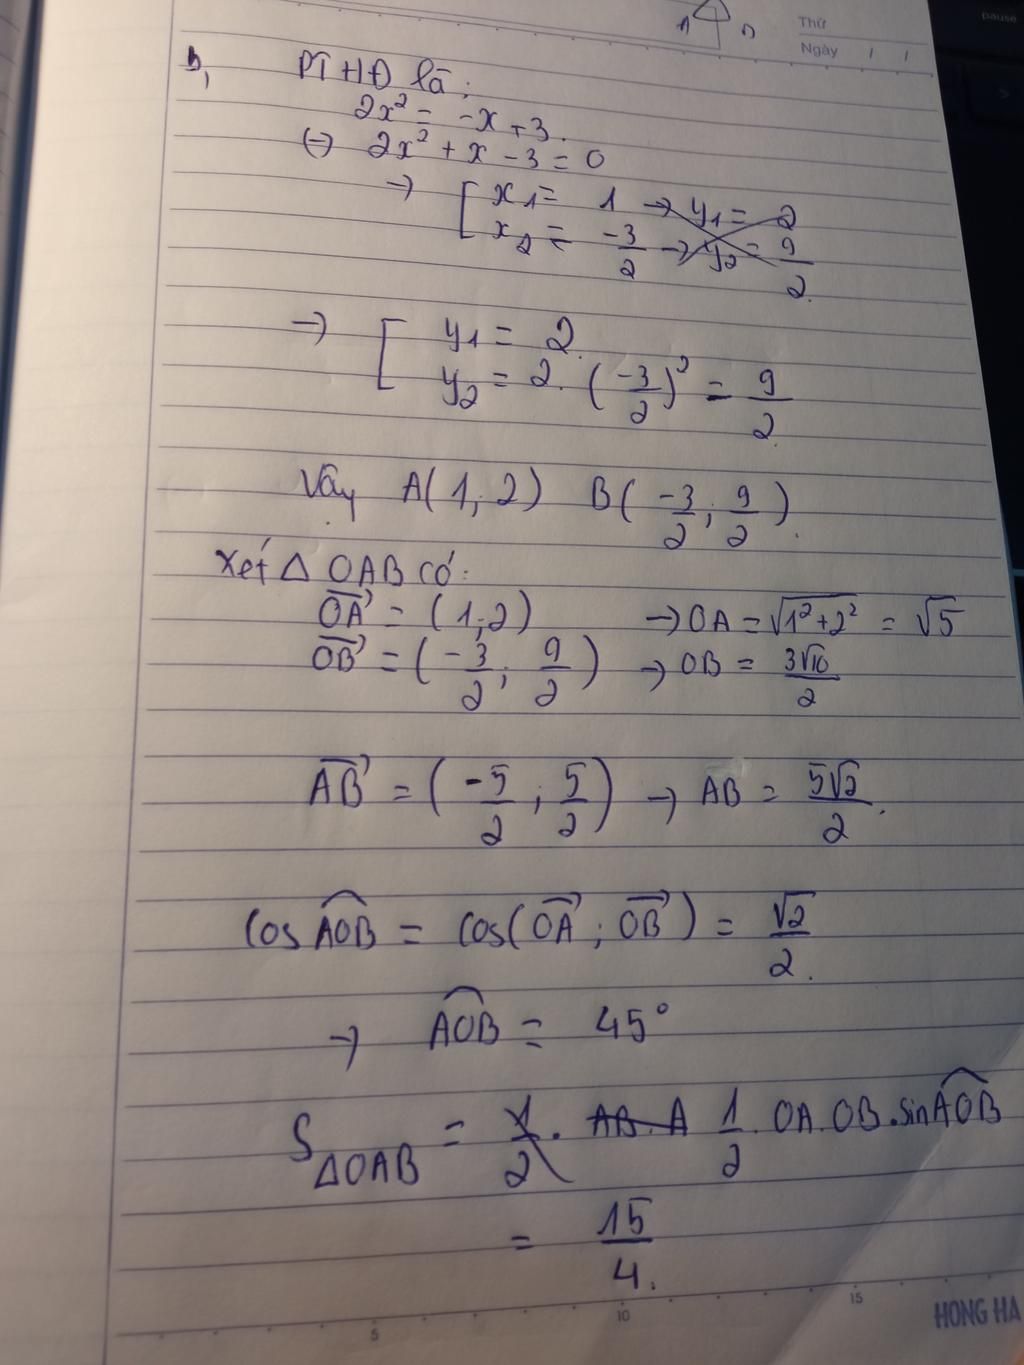 Thứ
Ngày / /
pause
b, PTHĐ là:
2x² = -x + 3.
(=) 2x² + x - 3 = 0
→ [ x₁ = 1 → y₁ = 2
x₂ = -3/2 → y₂ = 9/2.
→ [ y₁ = 2.
y₂ = 2. (-3/2)² = 9/2
Vây A(1; 2) B(-3/2; 9/2).
Xét Δ OAB có:
OA→ = (1; 2) → OA = √(1² + 2²) = √5
OB→ = (-3/2; 9/2) → OB = 3√10/2
AB→ = (-5/2; 5/2) → AB = 5√2/2.
Cos AOB = cos(OA→; OB→) = √2/2.
→ AOB = 45°
S ΔOAB = 1/2. AB. A 1/2. OA. OB. sin AOB
= 15/4.
5 10 15
HONG HA